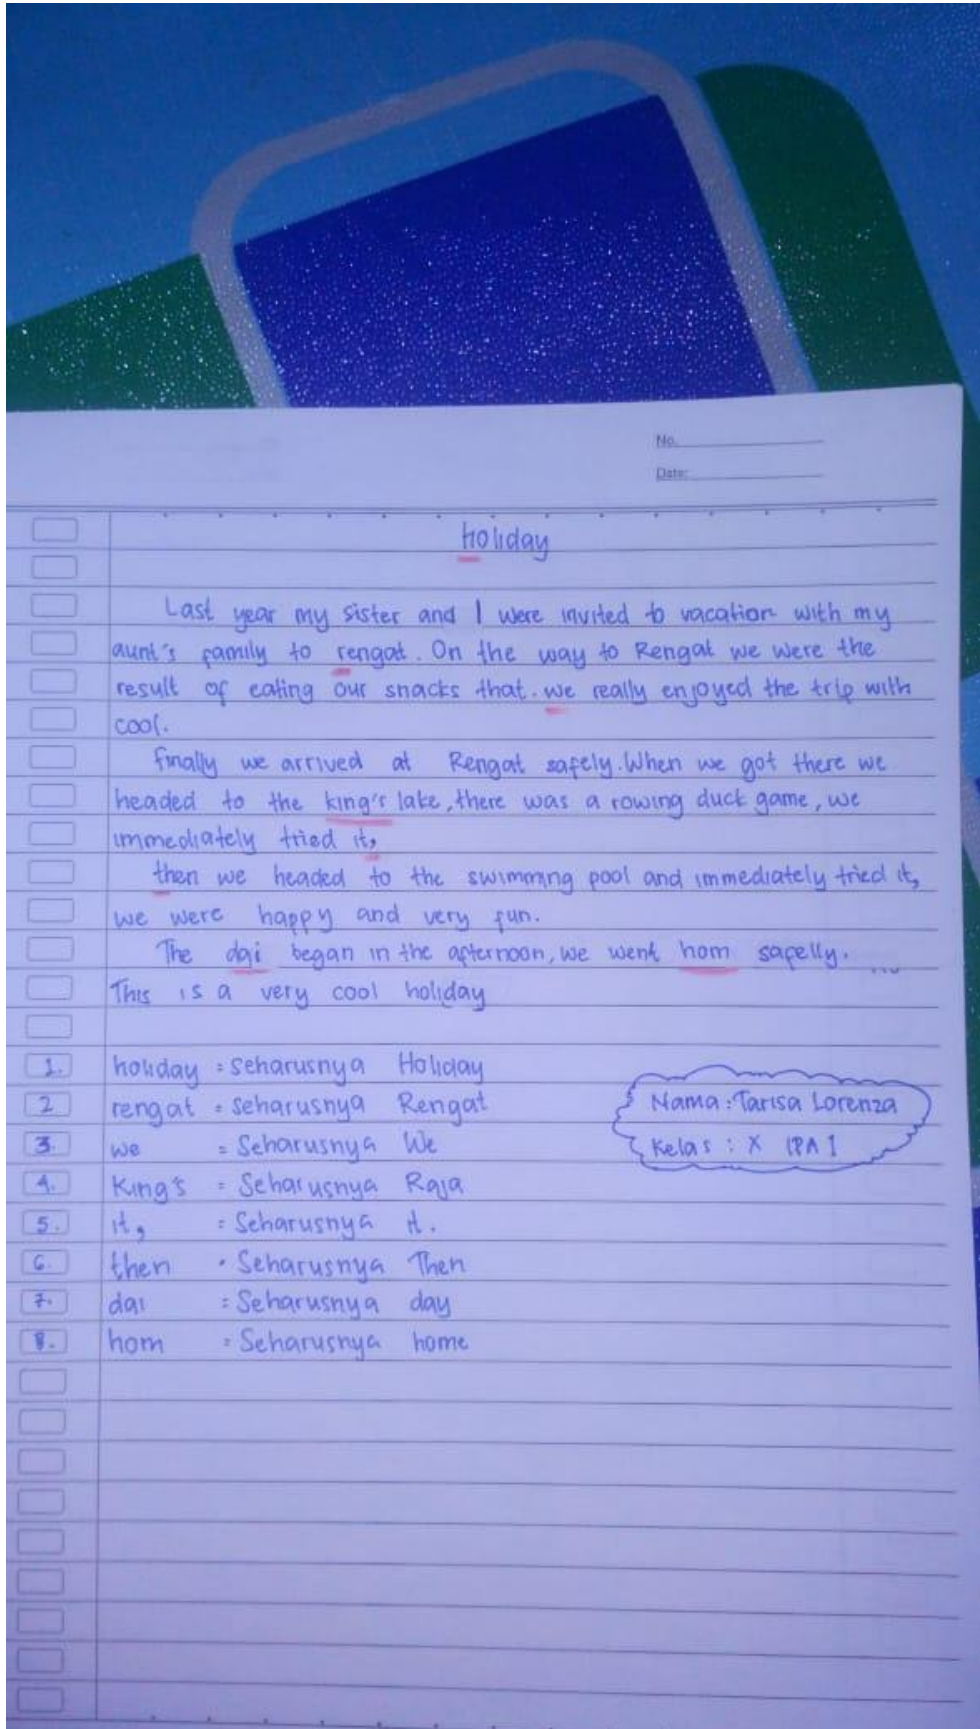 No.
Date:
holiday
Last year my sister and I were invited to vacation with my
aunt's family to rengat. On the way to Rengat we were the
result of eating our snacks that. we really enjoyed the trip with
cool.
Finally we arrived at Rengat safely. When we got there we
headed to the king's lake, there was a rowing duck game, we
immediately tried it,
then we headed to the swimming pool and immediately tried it,
we were happy and very fun.
The dai began in the afternoon, we went hom safelly.
This is a very cool holiday
1. holiday = seharusnya Holiday
2 rengat = seharusnya Rengat
Nama : Tarisa Lorenza
3. we = Seharusnya We
Kelas : X IPA 1
4. King's = Seharusnya Raja
5. it, = Seharusnya it.
6. then = Seharusnya Then
7. dai = Seharusnya day
8. hom = Seharusnya home